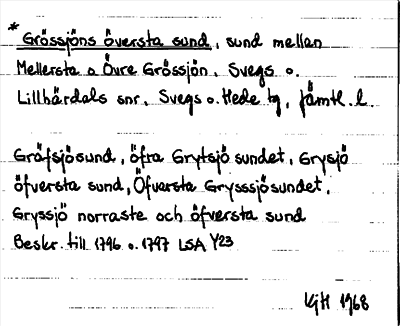 * Grössjöns översta sund, sund mellan
Mellersta o Övre Grössjön, Svegs o.
Lillhärdals snr, Svegs o. Hede tg, Jämtl. l.
Gräfsjösund, öfra Grytsjö sundet, Grysjö
öfversta sund, Öfversta Grysssjösundet,
Gryssjö norraste och öfversta sund
Beskr. till 1796 o. 1797 LSA Y23
KjH 1968